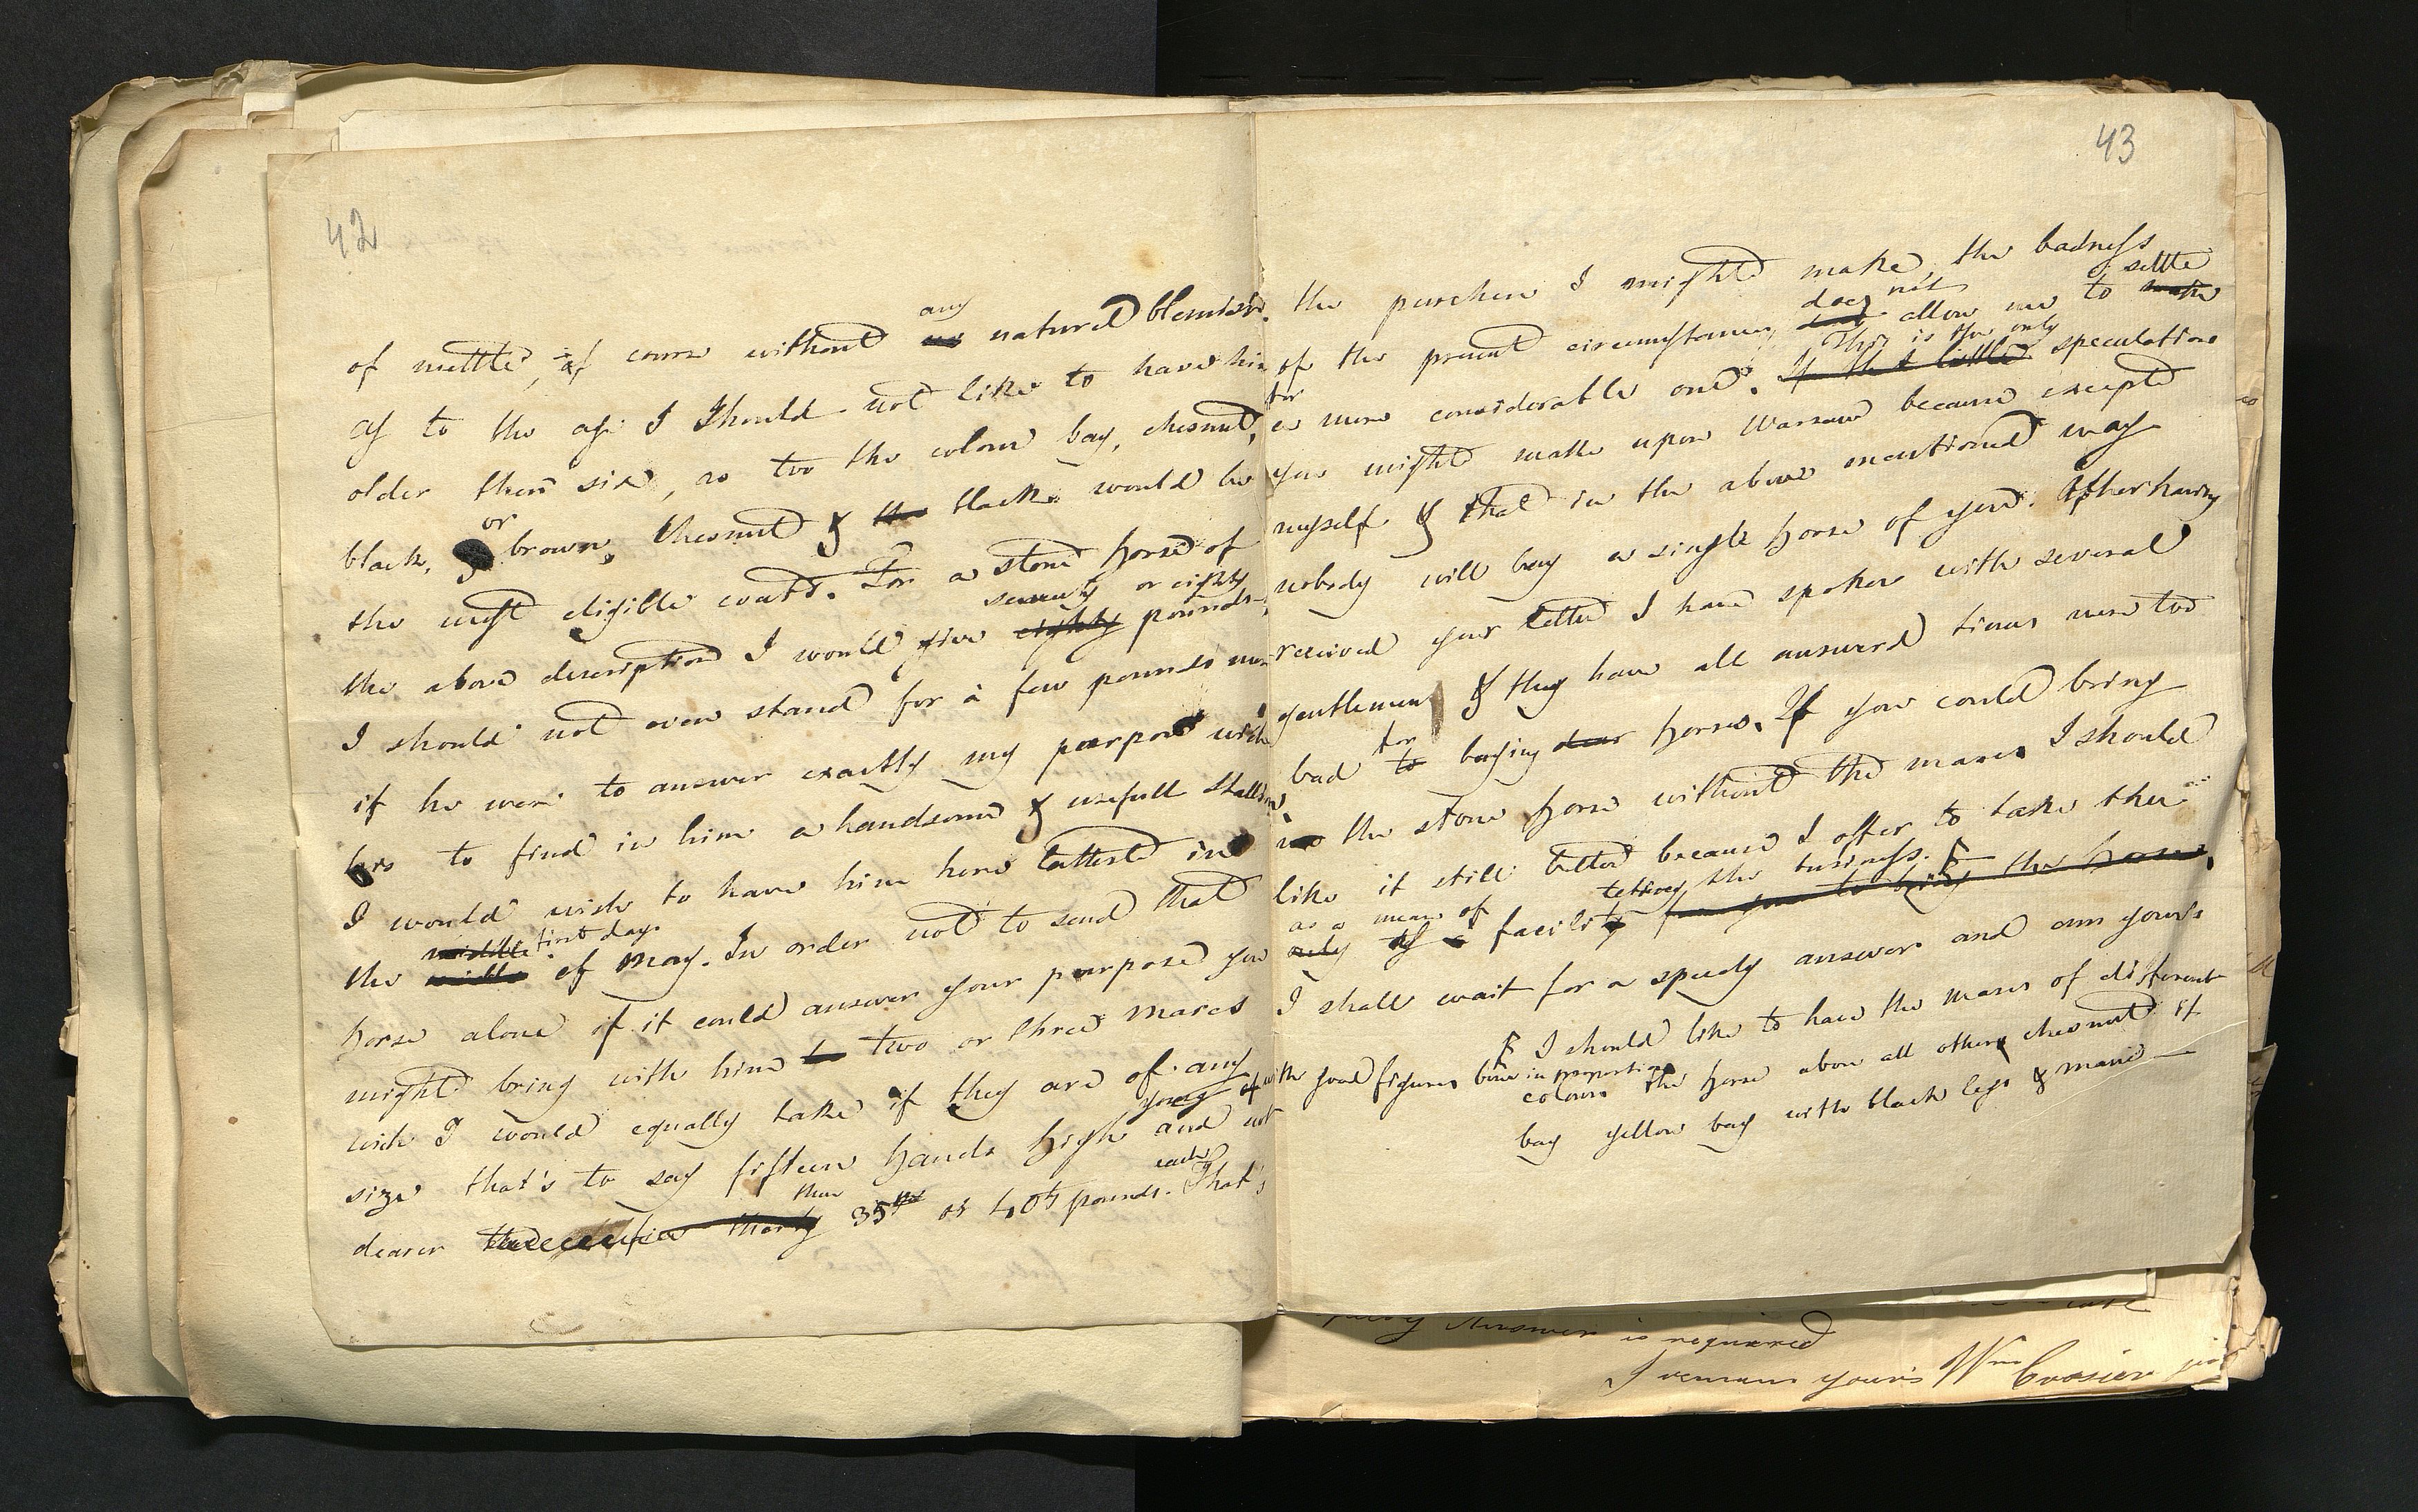 42
any
of mettle, of course without no natural blemish.
As to the age I should not like to have him
older then six, as too the colour bay, chesnut,
or
black, & brown, Chesnut & the black would be
the most eligible coats. For a stone horse of
seventy or eighty
the above description I would give eighty pounds,
I should not even stand for a few pounds more
if he were to answer exactly my purpose wich
is to find in him a handsome & usefull Stallion,
I would wish to have him here latterst in
middle first days
the middle of May. In order not to send that
horse alone if it could answer your purpose you
might bring with him to two or three mares
wich I would equally take if they are of any
young of with good figures bone in proportion
size that's to say fifteen hands high and not
then each
dearer five thirty 35 or 40 pounds. That's
43
the purchese I might make, the badness
does not settle
of the present circumstances dont allow me to make
for This is the only
a more considerable one. If the little speculation
you might make upon Warsaw because except
myself & that in the above mentioned way
nobody will buy a single horse of you. After having
received your letter I have spoken with several
gentlemen & they have all answerd times were too
for
bad to buying dear horses. If you could bring
the stone horse without the mares I should
like it still better because I offer to take the
as a mean of the business.
only as a facility for you to bring the horse.
I shall wait for a speedy answer and am yours
I should like to have the mares of different
colours the horse above all others chesnut if
bay yellow bay with black legs & mane
Answer is required
I remain yours Wm Crosier